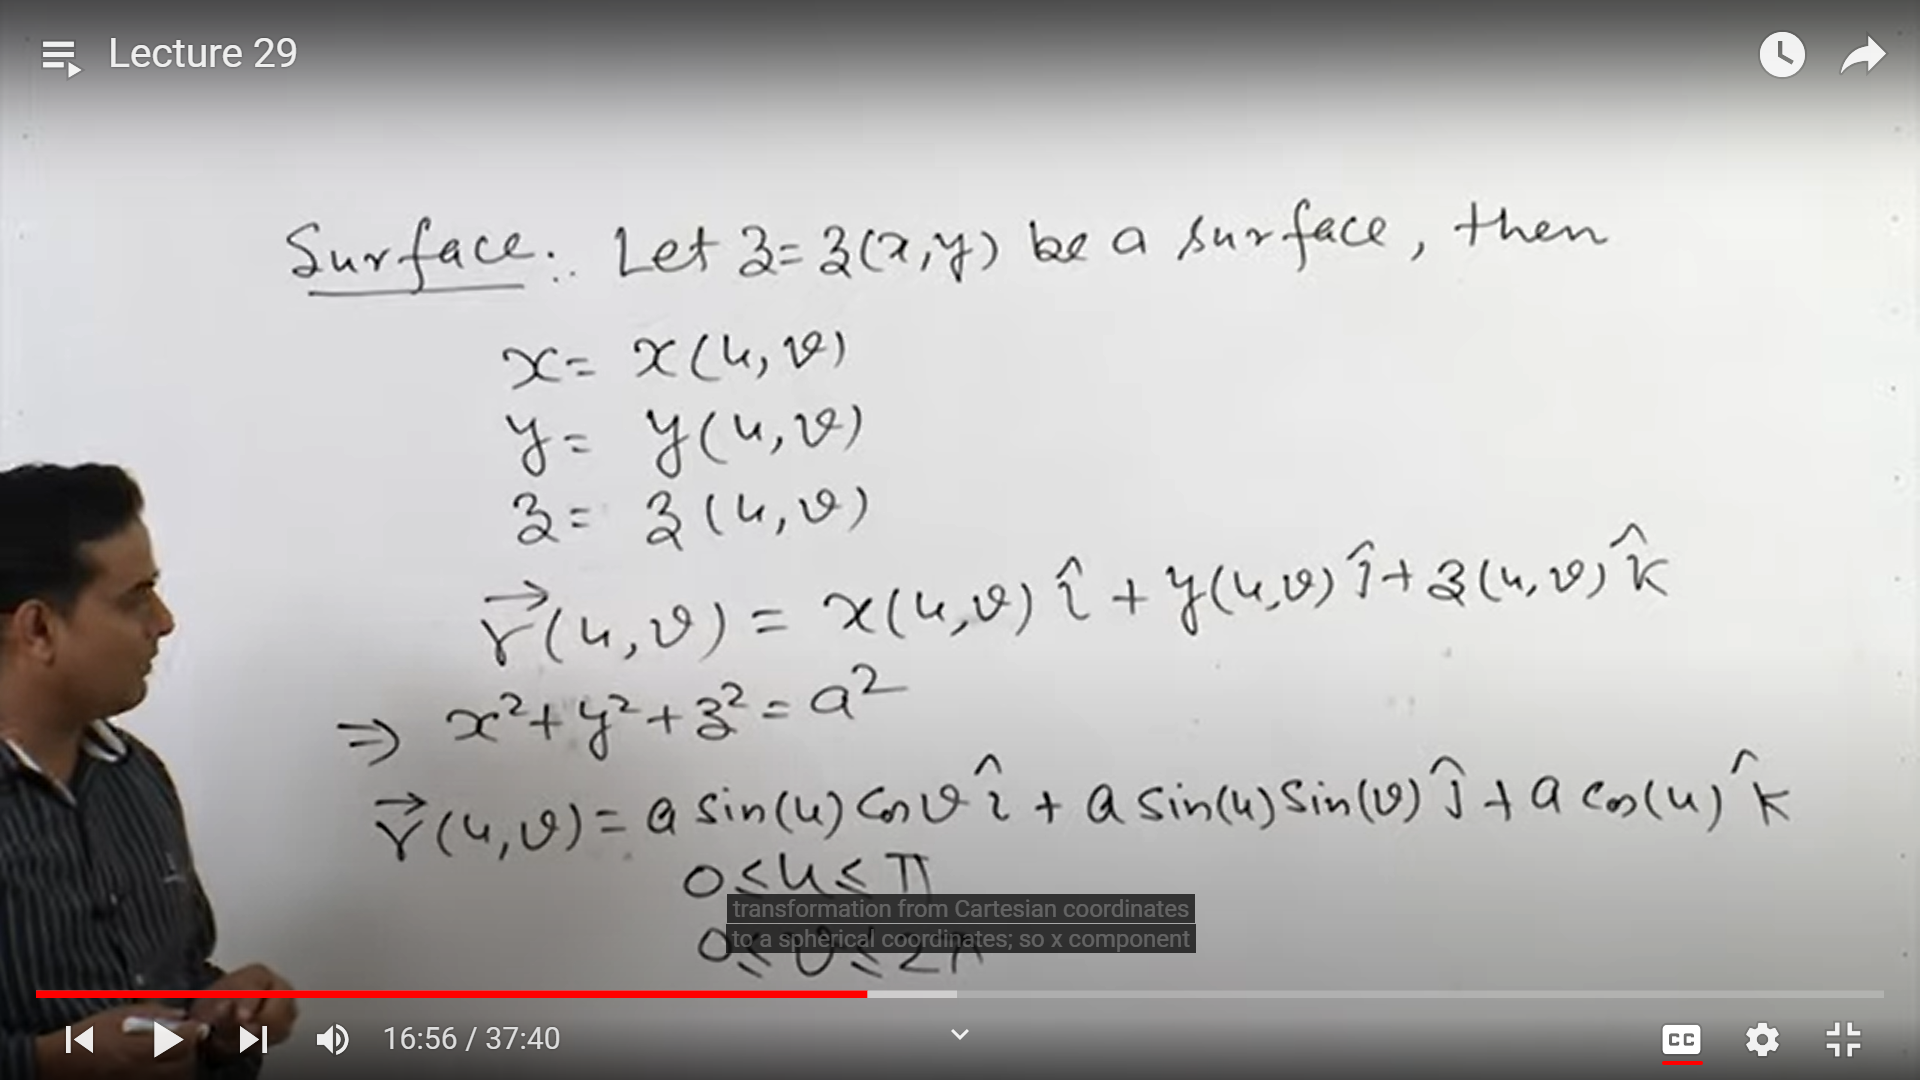 Lecture 29
Surface:. Let z=z(x,y) be a surface, then
x= x(u,v)
y= y(u,v)
z= z(u,v)
r⃗(u,v) = x(u,v) î + y(u,v) ĵ + z(u,v) k̂
⇒ x²+y²+z²=a²
r⃗(u,v)= a sin(u) cos v î + a sin(u) sin(v) ĵ + a cos(u) k̂
0≤u≤π
transformation from Cartesian coordinates
0≤v≤2π
to a spherical coordinates; so x component
16:56 / 37:40
CC